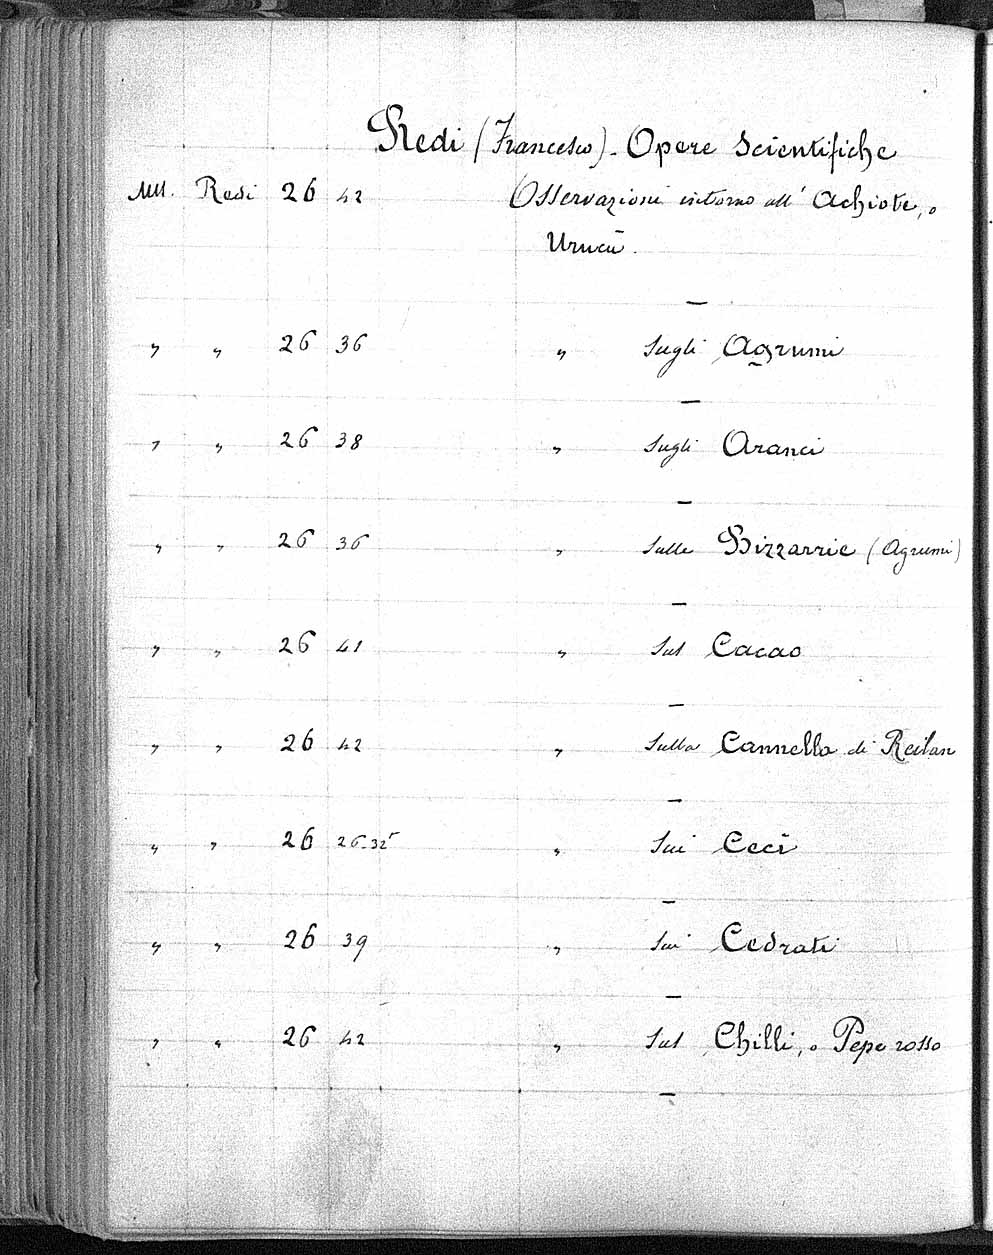 Redi (Francesco) - Opere Scientifiche
Mss. Redi 26 42 Osservazioni intorno all' Achiote, o
Urucù.
„ „ 26 36 „ sugli Agrumi
„ „ 26 38 „ sugli Aranci
„ „ 26 36 „ sulle Bizzarrie (Agrumi)
„ „ 26 41 „ sul Cacao
„ „ 26 42 „ sulla Cannella di
„ „ 26 26-32r „ sui Ceci
„ „ 26 39 „ sui Cedrati
„ „ 26 42 „ sul Chilli, o Pepe rosso